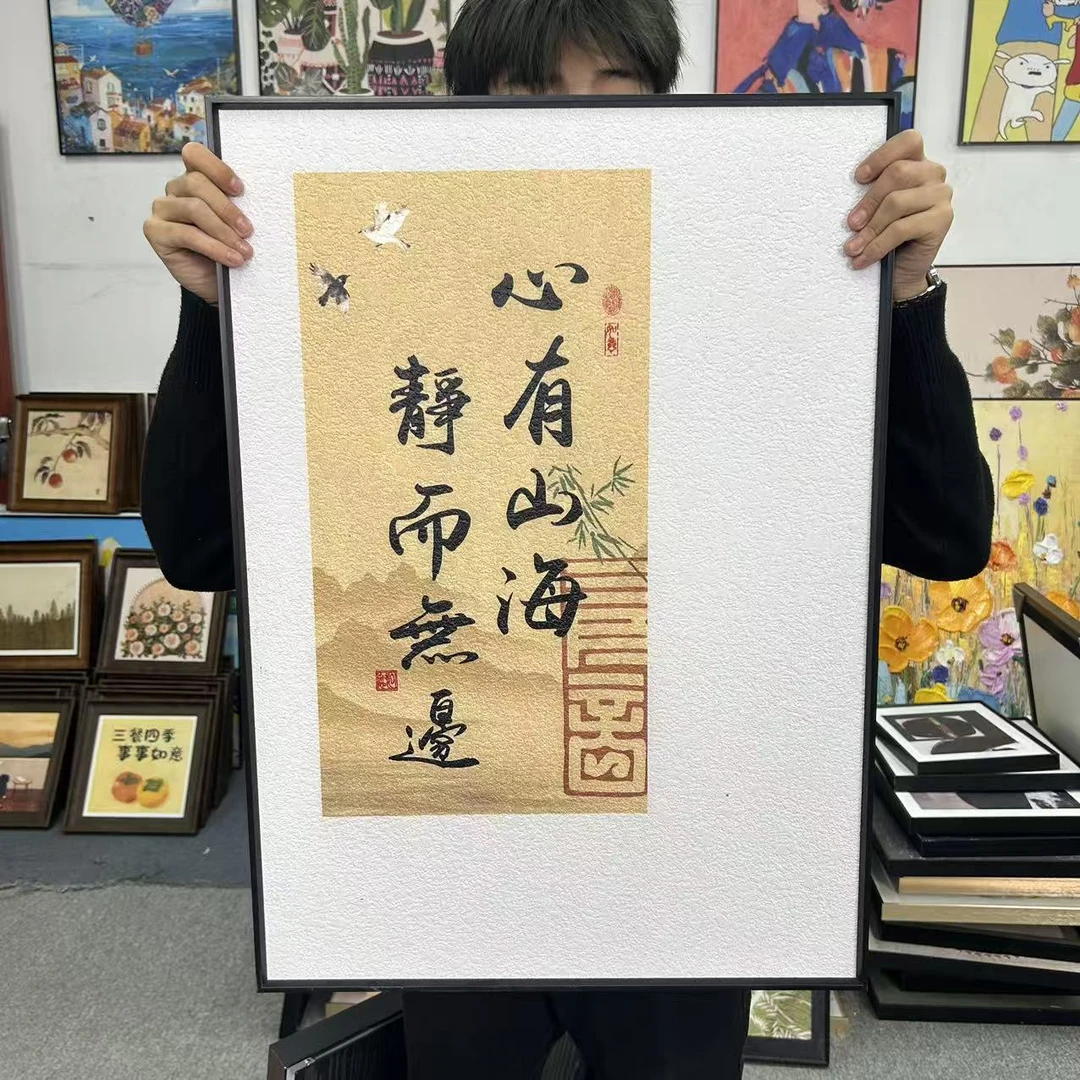 心有山海
靜而無邊
三餐四季
事事如意